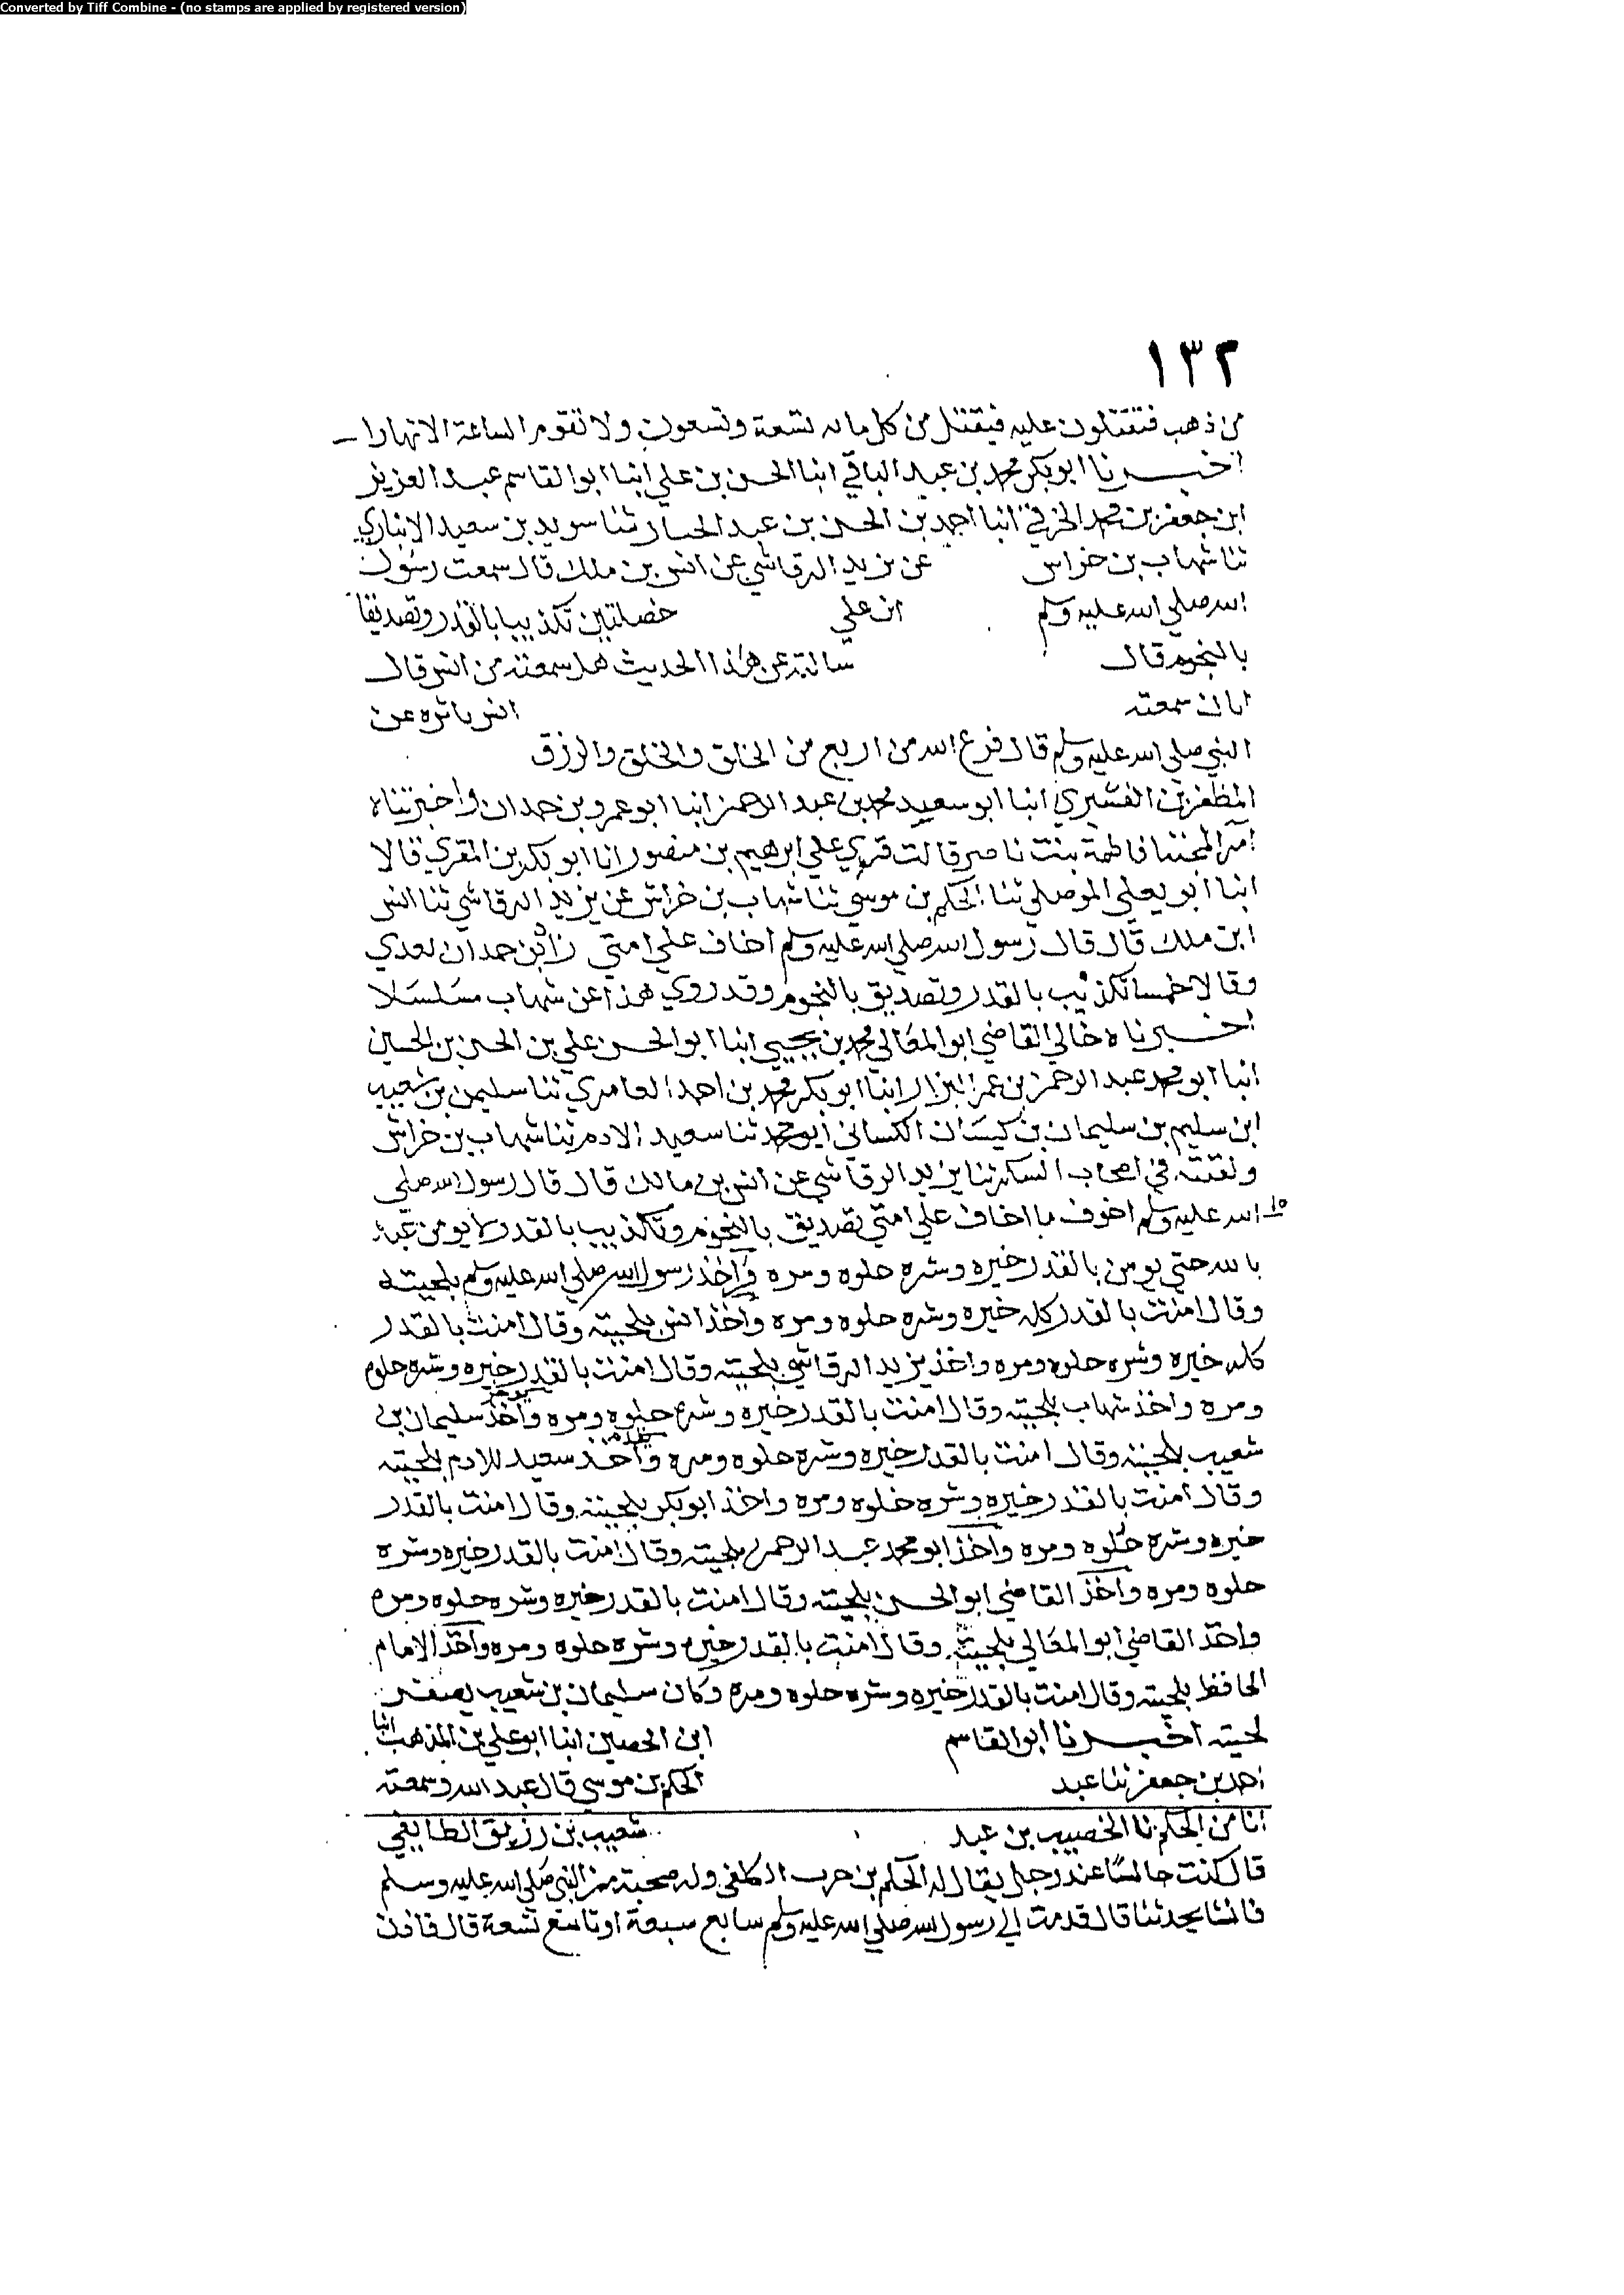 Converted by Tiff Combine - (no stamps are applied by registered version)
١٣٢
من ذهب فتقتتلون عليه فيقتتل من كل مايه تسعة وتسعون ولا تقوم الساعة الا نهارا
اخبرنا ابو بكر محمد بن عبد الباقي انبا الحسن بن علي انبا ابو القاسم عبد العزيز
ابن جعفر بن محمد الخرقي انبا احمد بن الحسن بن عبد الجبار ثنا سويد بن سعيد الانباري
ثنا شهاب بن خراش عن يزيد الرقاشي عن انس بن ملك قال سمعت رسول
الله صلي الله عليه وسلم ان علي خصلتين تكذيبا بالقدر وتصديقا
بالنجوم قال سالته عن هذا الحديث هل سمعته من انس قال
ابان سمعته انس ياثره عن
النبي صلي الله عليه وسلم قال فرغ الله من اربع من الخلق والخلق والرزق
المظفر بن القشيري انبا ابو سعيد محمد بن عبد الرحمن انبا ابو عمرو بن حمدان واخبرتناه
ام المجتبا فاطمة بنت ناصر قالت قري علي ابرهيم بن منصور انا ابو بكر بن المقري قالا
انبا ابو يعلي الموصلي ثنا الحكم بن موسي ثنا شهاب بن خراش عن يزيد الرقاشي ثنا انس
ابن ملك قال قال رسول الله صلي الله عليه وسلم اخاف علي امتي زاد بن حمدان بعدي
وقالا خمسا تكذيب بالقدر وتصديق بالنجوم وقد روي هذا عن شهاب مسلسلا
اخبرناه خالي القاضي ابو المعالي محمد بن يحيي انبا ابو الحسن علي بن الحسن بن الحسين
انبا ابو محمد عبد الرحمن بن عمر البزار انبا ابو بكر محمد بن احمد العامري ثنا سليمن بن شعيب
ابن سليم بن سليمان بن كيسان الكساني ابو محمد ثنا سعيد الادم ثنا شهاب بن خراش
ولقيته في اصحاب السكر ثنا يزيد الرقاشي عن انس بن مالك قال قال رسول الله صلي
الله عليه وسلم اخوف ما اخاف علي امتي تصديق بالنجوم وتكذيب بالقدر لا يومن عبد
بالله حتي يومن بالقدر خيره وشره حلوه ومره واخذ رسول الله صلي الله عليه وسلم بلحيته
وقال امنت بالقدر كله خيره وشره حلوه ومره واخذ انس بلحيته وقال امنت بالقدر
كله خيره وشره حلوه ومره واخذ يزيد الرقاشي بلحيته وقال امنت بالقدر خيره وشره حلوه
ومره واخذ شهاب بلحيته وقال امنت بالقدر خيره وشره حلوه ومره واخذ سليمان بن
شعيب بلحيته وقال امنت بالقدر خيره وشره حلوه ومره واخذ سعيد الادم بلحيته
وقال امنت بالقدر خيره وشره حلوه ومره واخذ ابو بكر بلحيته وقال امنت بالقدر
خيره وشره حلوه ومره واخذ ابو محمد عبد الرحمن بلحيته وقال امنت بالقدر خيره وشره
حلوه ومره واخذ القاضي ابو الحسن بلحيته وقال امنت بالقدر خيره وشره حلوه ومره
واخذ القاضي ابو المعالي بلحيته وقال امنت بالقدر خيره وشره حلوه ومره واخذ الامام
الحافظ بلحيته وقال امنت بالقدر خيره وشره حلوه ومره وكان سليمان بن شعيب يصفر
لحيته اخبرنا ابو القاسم ابن الحصين انبا ابو علي بن المذهب انبا
احمد بن جعفر ثنا عبد الحكم بن موسي قال عبد الله وسمعته
انا من الحكم نا الخصيب بن عبد شعيب بن رزيق الطايفي
قال كنت جالسا عند رجل يقال له الحكم بن حرب الكلفي وله صحبة من النبي صلي الله عليه وسلم
فانشا يحدثنا قال قدمت الي رسول الله صلي الله عليه وسلم سابع سبعة او تاسع تسعة قال فاذن